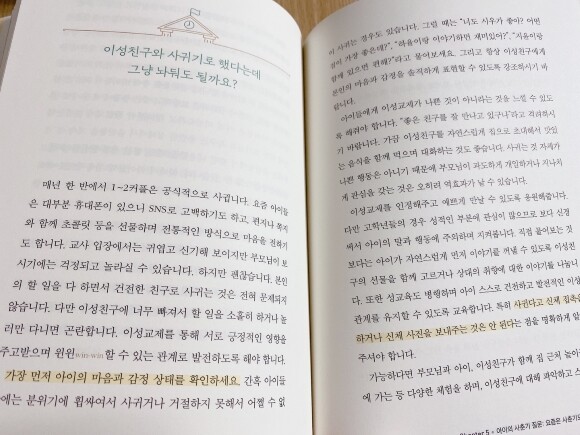 이성친구와 사귀기로 했다는데
그냥 놔둬도 될까요?
매년 한 반에서 1~2커플은 공식적으로 사귑니다. 요즘 아이들
은 대부분 휴대폰이 있으니 SNS로 고백하기도 하고, 편지나 쪽지
와 함께 초콜릿 등을 선물하며 전통적인 방식으로 마음을 전하기
도 합니다. 교사 입장에서는 귀엽고 신기해 보이지만 부모님이 보
시기에는 걱정되고 놀라실 수 있습니다. 하지만 괜찮습니다. 본인
의 할 일을 다 하면서 건전한 친구로 사귀는 것은 전혀 문제되지
않습니다. 다만 이성친구에 너무 빠져서 할 일을 소홀히 하거나 놀
러만 다니면 곤란합니다. 이성교제를 통해 서로 긍정적인 영향을
주고받으며 윈윈win-win할 수 있는 관계로 발전하도록 해야 합니다.
가장 먼저 아이의 마음과 감정 상태를 확인하세요. 간혹 아이들
에는 분위기에 휩싸여서 사귀거나 거절하지 못해서 어쩔 수 없
이 사귀는 경우도 있습니다. 그럴 때는 "너도 시우가 좋아? 어떤
점이 가장 좋은데?", "하율이랑 이야기하면 재미있어?", "지율이랑
함께 있으면 편해?"라고 물어보세요. 그리고 항상 이성친구에게
본인의 마음과 감정을 솔직하게 표현할 수 있도록 강조하시기 바
랍니다.
아이들에게 이성교제가 나쁜 것이 아니라는 것을 느낄 수 있도
록 해줘야 합니다. "좋은 친구를 잘 만나고 있구나"라고 격려하시
기 바랍니다. 가끔 이성친구를 자연스럽게 집으로 초대해서 맛있
는 음식을 함께 먹으며 대화하는 것도 좋습니다. 사귀는 것 자체가
나쁜 행동은 아니기 때문에 부모님이 과도하게 개입하거나 지나치
게 관심을 갖는 것은 오히려 역효과가 날 수 있습니다.
이성교제를 인정해주고 예쁘게 만날 수 있도록 응원해줍니다.
다만 고학년들의 경우 성적인 부분에 관심이 많으므로 보다 신경
써서 아이의 말과 행동에 주의하며 지켜봅니다. 직접 물어보는 것
보다는 아이가 자연스럽게 먼저 이야기를 꺼낼 수 있도록 이성친
구의 선물을 함께 고르거나 상대의 취향에 대한 이야기를 나눕니
다. 또한 성교육도 병행하며 아이 스스로 건전하고 발전적인 이성
관계를 유지할 수 있도록 교육합니다. 특히 사귄다고 신체 접촉을
하거나 신체 사진을 보내주는 것은 안 된다는 점을 명확하게 알
주셔야 합니다.
가능하다면 부모님과 아이, 이성친구가 함께 집 근처 놀이
에 가는 등 다양한 체험을 하며, 이성친구에 대해 파악하고 스
5 • 아이의 사춘기 질문: 요즘은 사춘기도